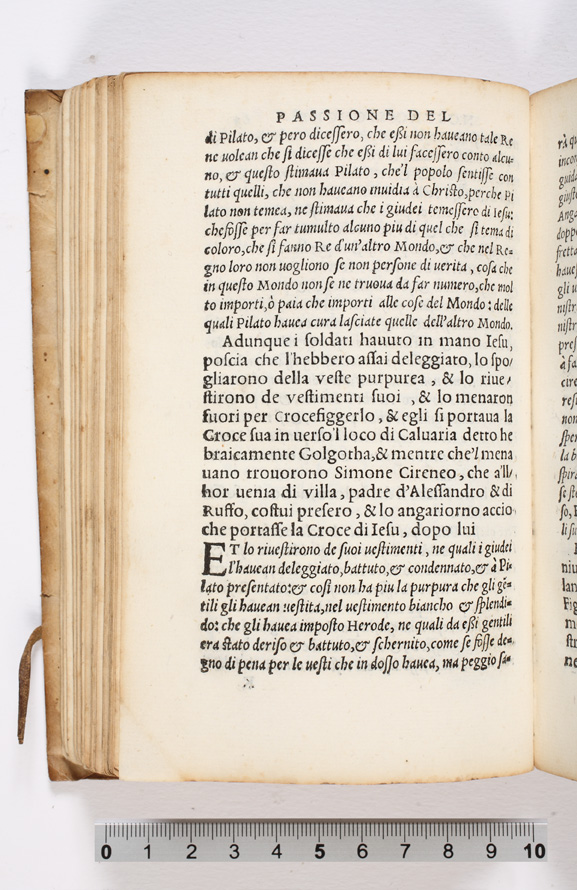 PASSIONE DEL
di Pilato, & pero dicessero, che eßi non haueano tale Re
ne uolean che si dicesse che eßi di lui facessero conto alcu-
no, & questo stimaua Pilato, che'l popolo sentisse con
tutti quelli, che non haueano inuidia à Christo, perche Pi
lato non temea, ne stimaua che i giudei temessero di Iesu:
chefosse per far tumulto alcuno piu di quel che si tema di
coloro, che si fanno Re d'un'altro Mondo, & che nel Re-
gno loro non uogliono se non persone di uerita, cosa che
in questo Mondo non se ne truoua da far numero, che mol
to importi, ò paia che importi alle cose del Mondo: delle
quali Pilato hauea cura lasciate quelle dell'altro Mondo.
Adunque i soldati hauuto in mano Iesu,
poscia che l'hebbero assai deleggiato, lo spo/
gliarono della veste purpurea, & lo riue/
stirono de vestimenti suoi, & lo menaron
fuori per Crocefiggerlo, & egli si portaua la
Croce sua in uerso'l loco di Caluaria detto he
braicamente Golgotha, & mentre che'l mena
uano trouorono Simone Cireneo, che all/
hor uenia di villa, padre d'Alessandro & di
Ruffo, costui presero, & lo angariorno accio
che portasse la Croce di Iesu, dopo lui
ET lo riuestirono de suoi uestimenti, ne quali i giudei
l'hauean deleggiato, battuto, & condennato, & à Pi-
lato presentato: & cosi non ha piu la purpura che gli gē-
tili gli hauean uestita, nel uestimento biancho & splendi-
do: che gli hauea imposto Herode, ne quali da eßi gentili
era stato deriso & battuto, & schernito, come se fosse de-
gno di pena per le uesti che in dosso hauea, ma peggio sa-